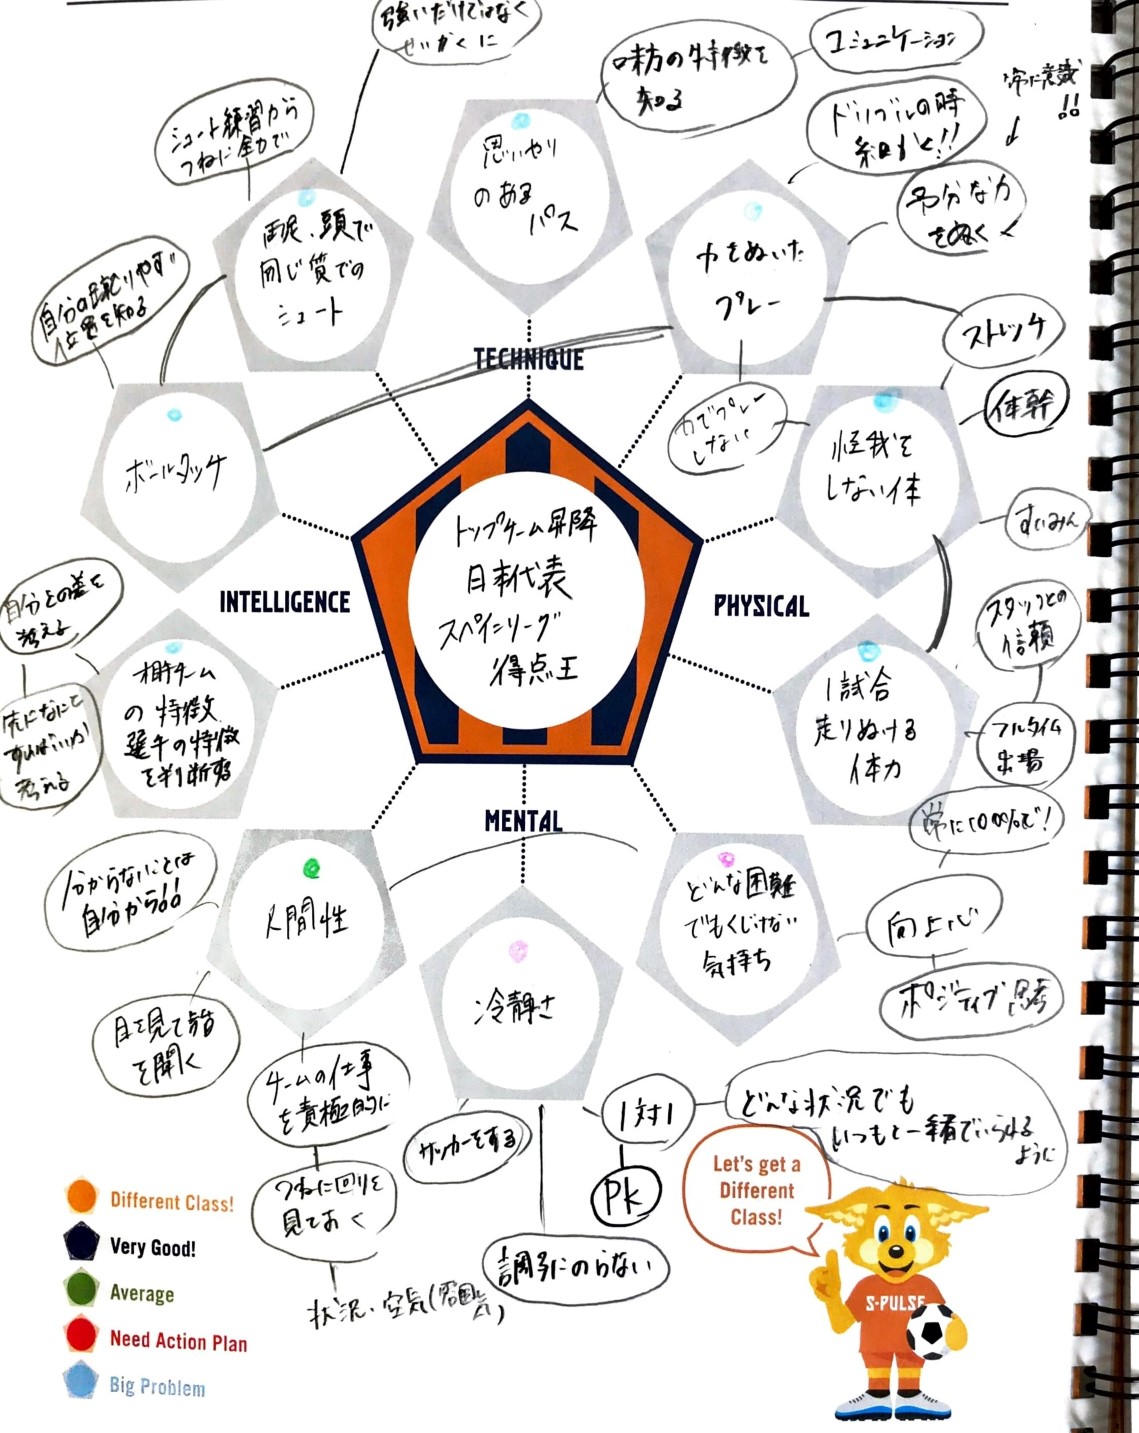 強いだけではなく
せいかくに
味方の特徴を
知る
コミュニケーション
常に意識
!!
シュート練習から
つねに全力で
ドリブルの時
細かく!!
余分な力
をぬく
思いやり
のある
パス
両足、頭で
同じ質での
シュート
力をぬいた
プレー
自分の蹴りやすい
位置を知る
ストレッチ
TECHNIQUE
力でプレー
しない
体幹
ボールタッチ
怪我を
しない体
すいみん
トップチーム昇降
日本代表
スペインリーグ
得点王
INTELLIGENCE
PHYSICAL
自分との差を
考える
スタッフとの
信頼
相手チーム
の特徴
選手の特徴
を判断する
1試合
走りぬける
体力
先になにを
すればいいか
考える
フルタイム
出場
常に100%で!
MENTAL
分からないことは
自分から!!
人間性
どんな困難
でもくじけない
気持ち
向上心
ポジティブ思考
冷静さ
目を見て話
を聞く
チームの仕事
を責極的に
サッカーをする
1対1
どんな状況でも
いつもと一緒でいられる
ように
PK
つねに回りを
見ておく
調子にのらない
状況、空気(雰囲気)
Let's get a
Different
Class!
Different Class!
Very Good!
Average
Need Action Plan
Big Problem
S-PULSE